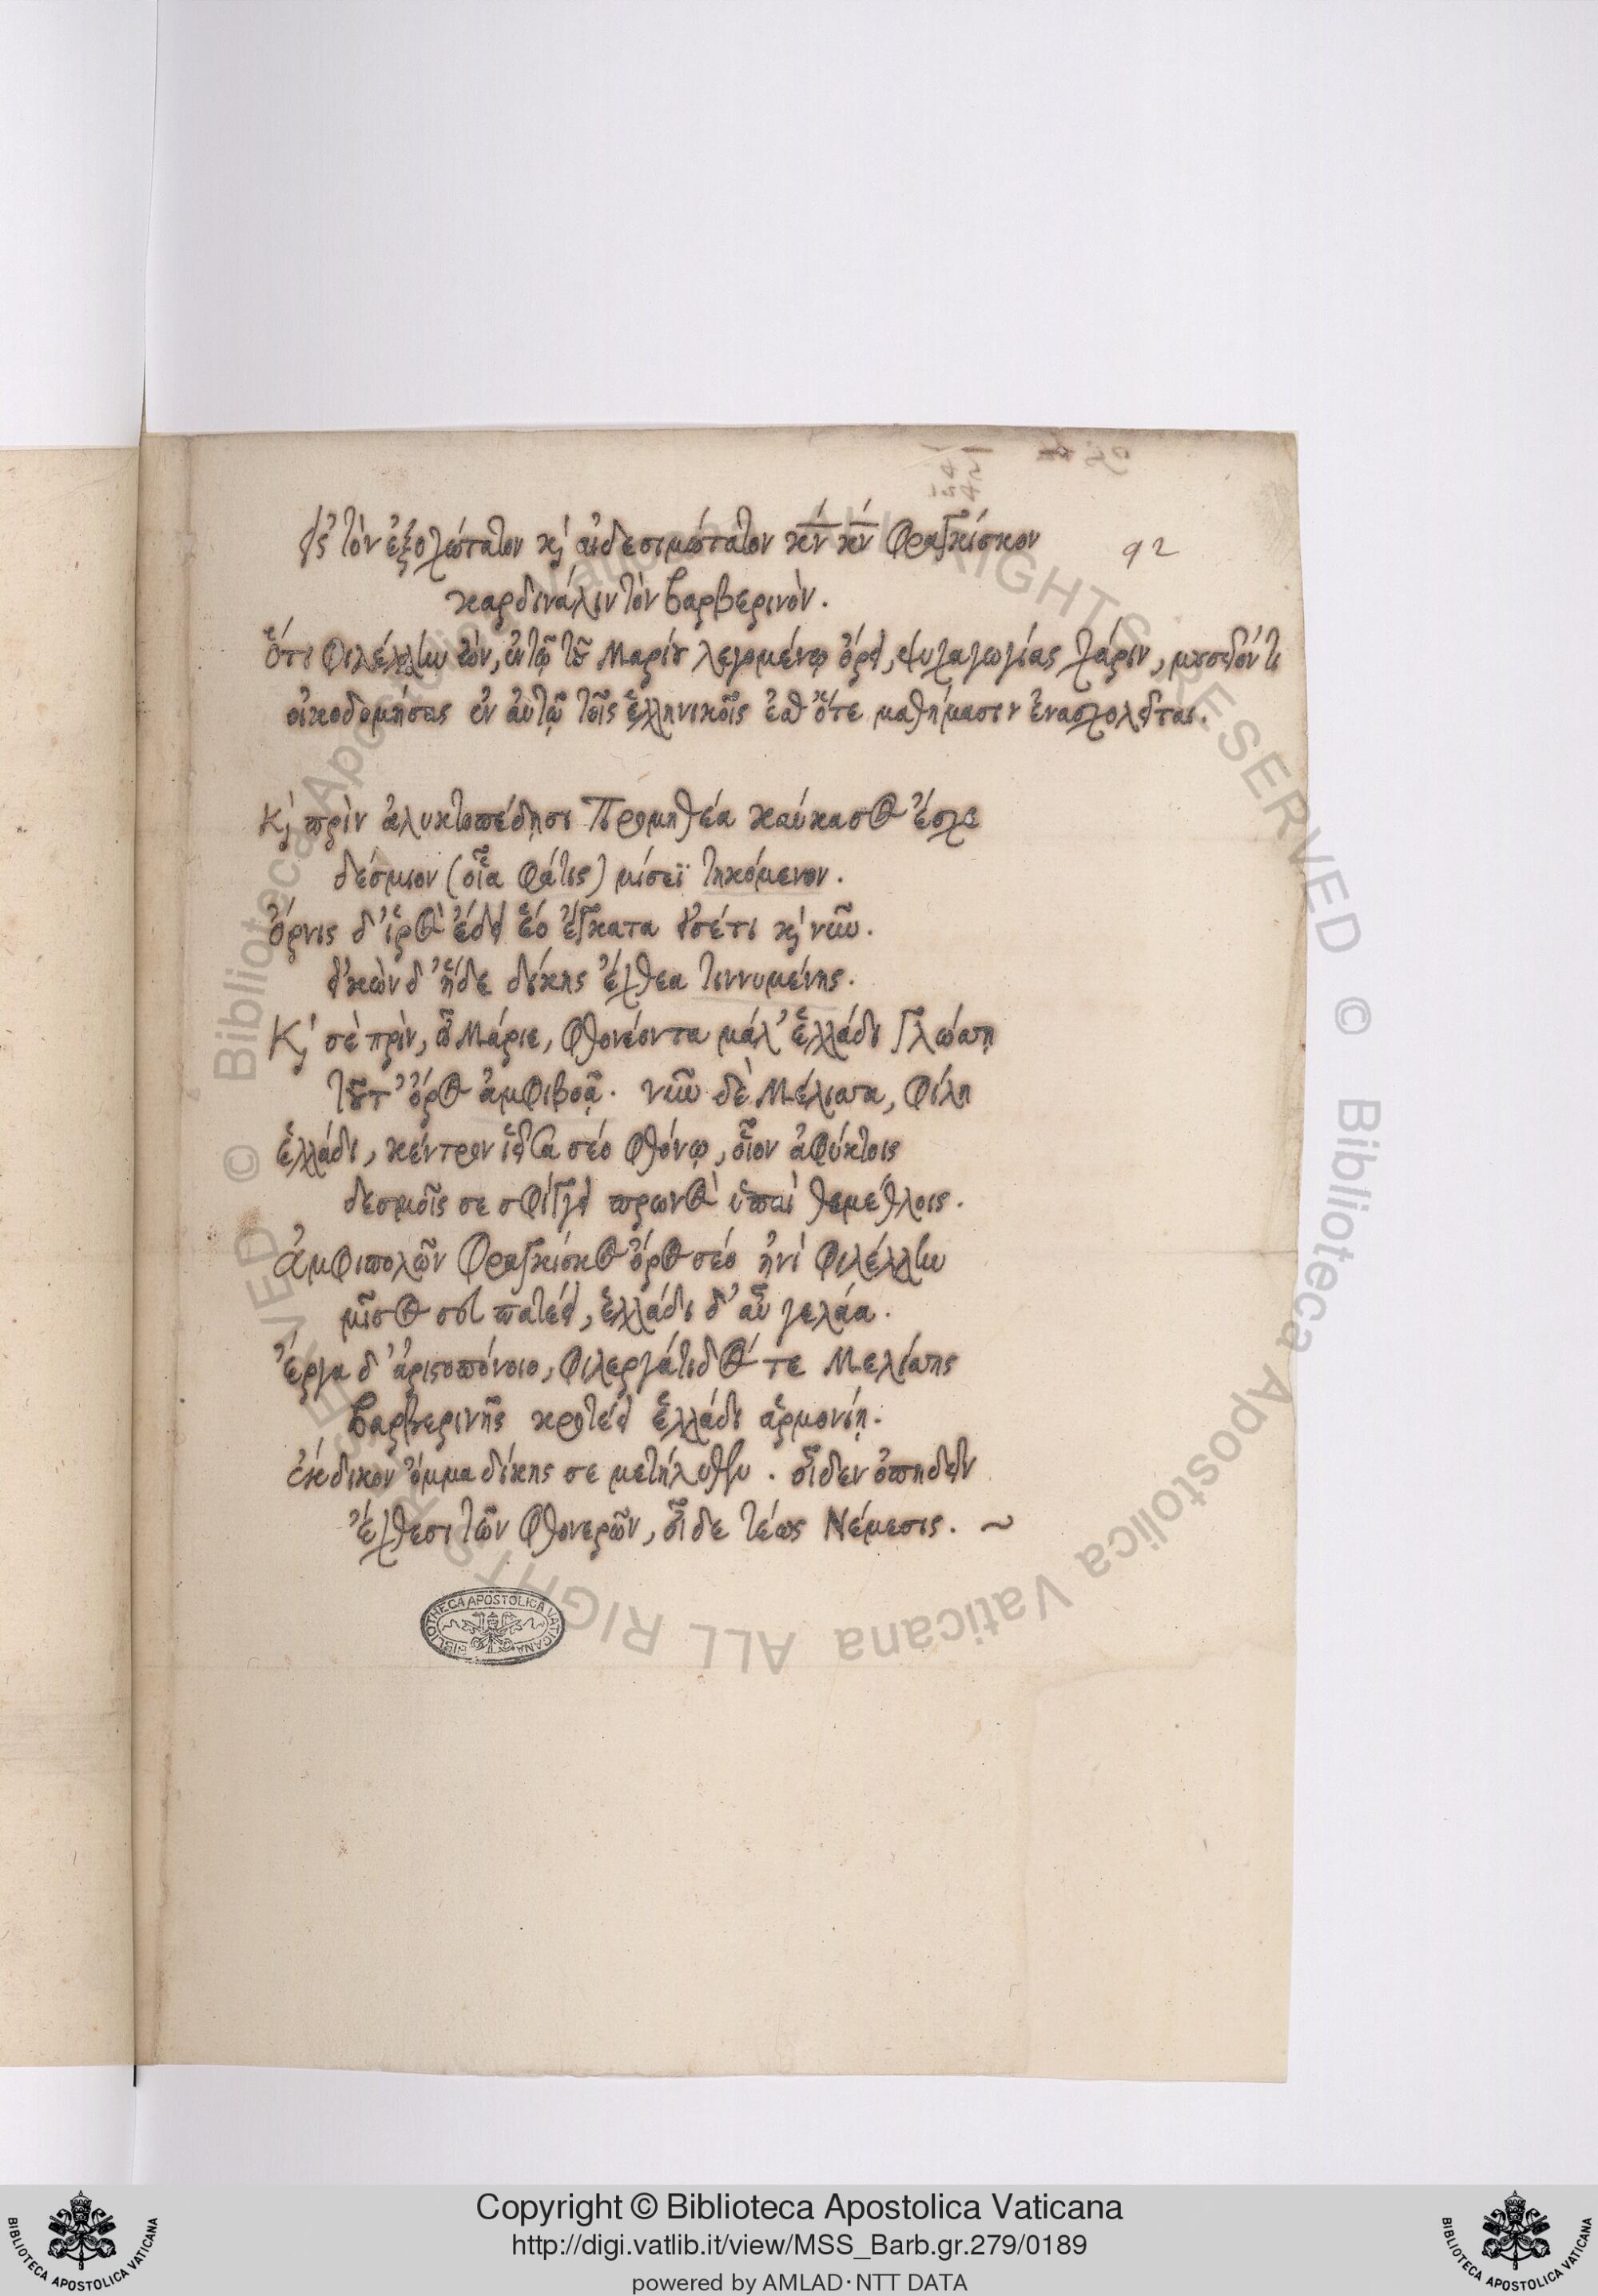 εἰς τὸν ἐξοχώτατον κỳ αἰδεσιμώτατον κν́ κν́ Φραγκίσκον
92
καρδινάλιν τὸν Βαρβερινὸν.
ὅτι Φιλέλλην ὢν, ἐν τῷ τοῦ Μαρίου λεγομένῳ ὄρει, ψυχαγωγίας χάριν, μουσεῖόν τι
οἰκοδομήσας ἐν ἀυτῷ τοῖς ἑλληνικοῖς ἔσθ' ὅτε μαθήμασιν ἐνασχολεῖται.
Κỳ πρὶν ἀλυκτοπέδῃσι Προμηθέα καύκασος ἔσχε
δέσμιον (οἷα φάτις) μίσεϊ τηκόμενον.
ὄρνις δ' ἱρὸς ἔδει ἑὸ ἔγκατα εἰσέτι κỳ νῦν.
εἰκὼν δ' ἥδε δίκης ἔχθεα τιννυμένης.
Κỳ σὲ πρὶν, ὦ Μάριε, φθονέοντα μάλ' ἑλλάδι γλώσσῃ
τοῦτ' ὄρος ἀμφιβοᾷ. νῦν δὲ Μέλισσα, φίλη
ἑλλάδι, κέντρον ἱεῖσα σέο φθόνῳ, οἷον ἀφύκτοις
δεσμοῖς σε σφίγγει πρωνὸς ὑπαὶ θεμέθλοις.
Ἀμφιπολῶν Φραγκίσκος ὄρος σέο ἠνὶ φιλέλλην
μῖσος σοῦ πατέει, ἑλλάδι δ' αὖ γελάα.
Ἔργα δ' ἀριστοπόνοιο, φιλεργάτιδός τε Μελίσσης
Βαρβερινῆς κροτέει ἑλλάδι ἁρμονίῃ.
ἔκδικον ὄμμα δίκης σε μετήλυθεν. οἶδεν ὀπηδεῖν
ἔχθεσι τῶν φθονερῶν, οἶδε τέως Νέμεσις. ~
BIBLIOTHECA APOSTOLICA VATICANA
© Biblioteca Apostolica Vaticana ALL RIGHTS RESERVED © Biblioteca Apostolica Vaticana ALL RIGHTS RESERVED
Copyright © Biblioteca Apostolica Vaticana
http://digi.vatlib.it/view/MSS_Barb.gr.279/0189
powered by AMLAD·NTT DATA
BIBLIOTECA APOSTOLICA VATICANA
BIBLIOTECA APOSTOLICA VATICANA